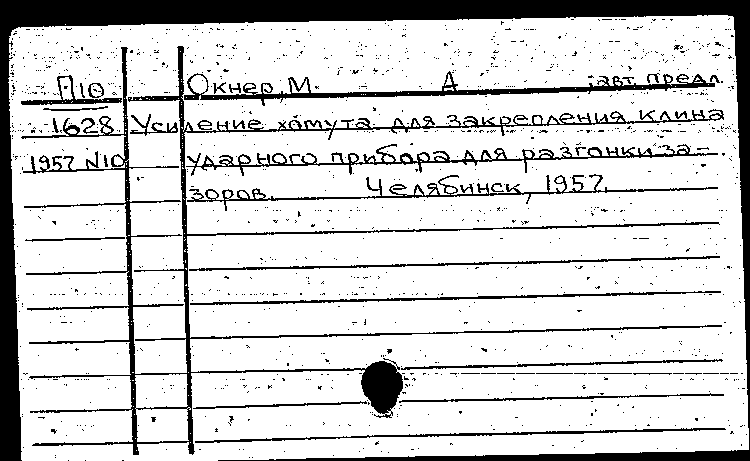 П10 Окнер, М. А ; авт. предл.
1628 Усиление хомута для закрепления клина
1957 N10 ударного прибора для разгонки за-
зоров. Челябинск, 1957.